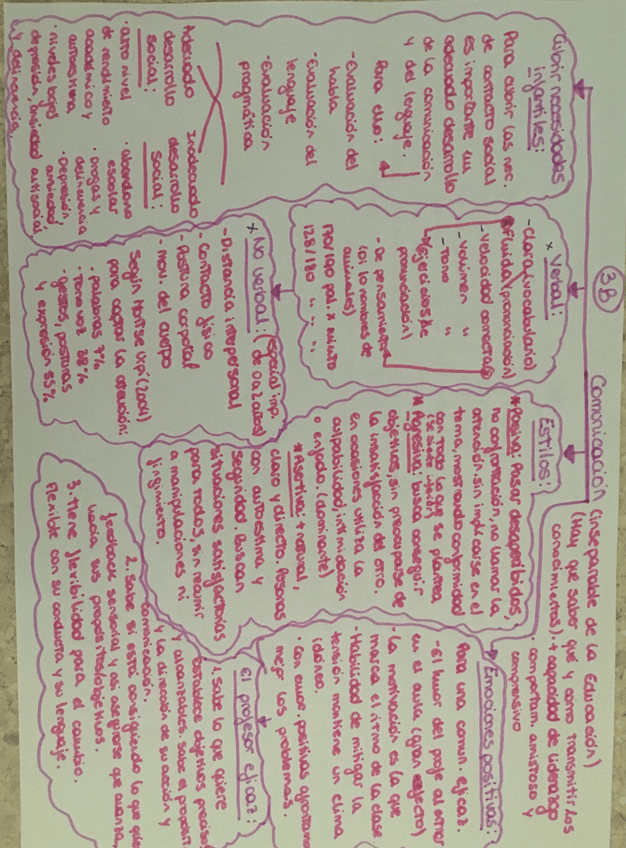 3B
Comunicación (inseparable de la Educación)
(Hay que saber qué y cómo transmitir los
conocimientos). + capacidad de liderazgo
comportam. amistoso y
comprensivo
Cubrir necesidades
infantiles:
Para cubrir las nec.
de contacto social
es importante un
adecuado desarrollo
de la comunicación
y del lenguaje.
Para ello:
- Evaluación del
habla
- Evaluación del
lenguaje
- Evaluación
pragmática
Adecuado
desarrollo
social:
- alto nivel
de rendimiento
académico y
autoestima
- niveles bajos
depresión, ansiedad
y delincuencia
Inadecuado
desarrollo
social:
- abandono
escolar
- drogas y
delincuencia
- Depresión,
ansiedad,
antisocial
x Verbal:
- Clara (vocabulario)
Fluida (pronunciación)
- velocidad correcta
- volumen "
- Tono "
Ejercicios de
pronunciación
- de pensamiento
(di 10 nombres de
animales)
170/190 pal. x minuto
128/130 " " "
x No verbal: (especial imp.
de 0 a 2 años)
- Distancia interpersonal
- Contacto físico
- Postura corporal
- Mov. del cuerpo
Según
para captar la atención:
· palabras 7%
· Tono voz 38%
· gestos, posturas
y expresión 55%
Estilos:
* Pasiva: Pasar desapercibidos,
no confrontación, no llamar la
atención. sin implicarse en el
tema, mostrando conformidad
con todo lo que se plantea
* Agresiva: busca conseguir
objetivos, sin preocuparse de
la insatisfacción del otro.
en ocasiones utiliza la
culpabilidad, intimidación
o enfado. (dominante)
* Asertiva: + natural,
claro y directo. Personas
con autoestima y
seguridad. Buscan
situaciones satisfactorias
para todos, sin recurrir
a manipulaciones ni
fingimiento.
Emociones positivas:
Para una comun. eficaz.
- El humor del profe al entrar
en el aula (gran efecto)
- La motivación es la que
marca el ritmo de la clase
- Habilidad de mitigar la
tensión mantiene un clima
idóneo.
· con emoc. positivas afrontamos
mejor los problemas.
El profesor eficaz:
1. Sabe lo que quiere
establece objetivos precisos
y alcanzables. Sabe el propósito
y la dirección de su acción y
comunicación.
2. Sabe si está consiguiendo lo que quiere
feedback sensorial y así asegurarse que avanza
hacia sus propósitos/objetivos.
3. Tiene flexibilidad para el cambio.
Flexible con su conducta y su lenguaje.